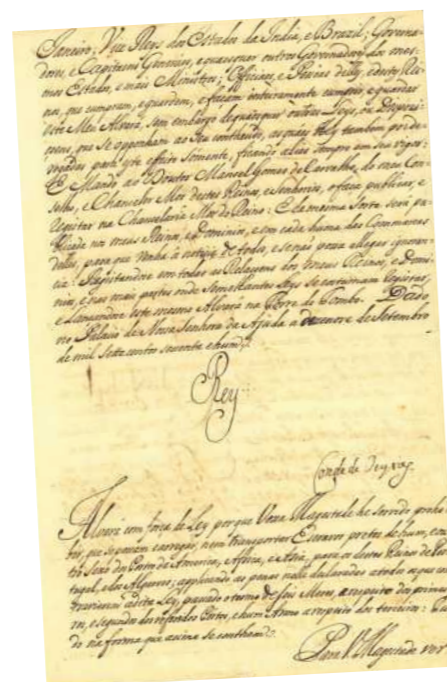 Janeiro; Vice Reys dos Estados da India, e Brazil; Governa-
dores, e Capitaens Generaes, e quaesquer outros Governadores dos mes-
mos Estados, e mais Ministros, Officiaes, e Pessoas delles, e destes Rei-
nos, que cumpram, e guardem, e façam inteiramente cumprir, e guardar
este Meu Alvará, sem embargo de quaesquer outras Leys, ou Disposi-
çoens, que se opponham ao seu contheudo, as quaes Hey tambem por de-
rogadas para este effeito somente, ficando aliás sempre em seu vigor.
E Mando ao Doutor Manoel Gomes de Carvalho, do meu Con-
selho, e Chanceler Mor destes Reinos, e Senhorios, o faça publicar, e
registar na Chancelaria Mor do Reino: E da mesma sorte será pu-
blicado nos meus Reinos, e Dominios, e em cada huma das Commarcas
delles, para que venha á noticia de todos, e se não possa allegar ignoran-
cia: Registandose em todas as Relaçoens dos Meus Reinos, e Domi-
nios, e nas mais partes onde semelhantes Leys se costumam registar,
e Lançandose este mesmo Alvará na Torre do Tombo. Dado
no Palacio de Nossa Senhora da Ajuda a dezenove de Setembro
de mil sete centos sessenta e hum.
Rey
Conde de Oeyras
Alvará com força de Ley porque Vossa Magestade he servido prohi-
bir, que se possam carregar, nem transportar Escravos pretos de hum, e ou-
tro Sexo dos Portos da America, Africa, e Asia, para os destes Reinos de Por-
tugal, e dos Algarves; applicando as penas nelle declaradas a todos os que con-
travierem a dita Ley, passado o termo de seis Mezes, a respeito dos primei-
ros, e segundos dos referidos Portos, e hum Anno a respeito dos terceiros: Tu-
do na forma que acima se conthem.
Para V. Magestade ver